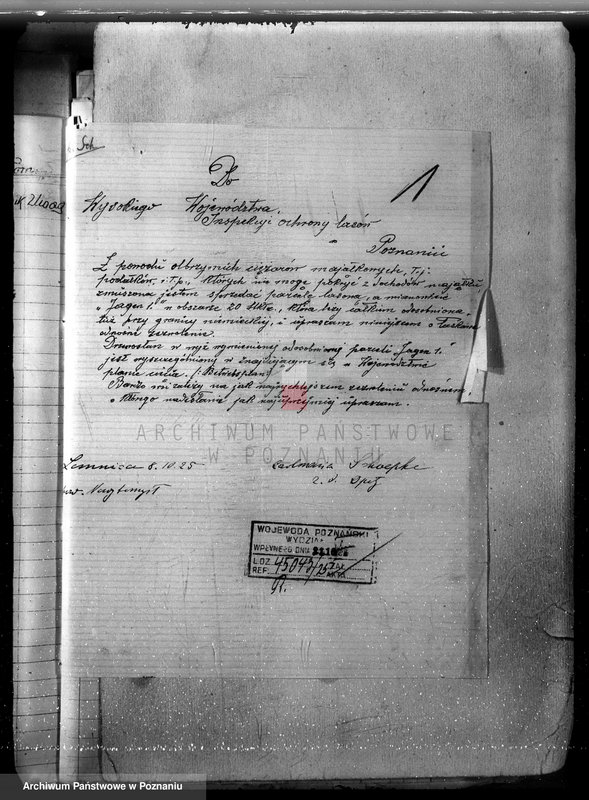 Do
1
Wysokiego Województwa,
Inspekcji ochrony lasów
w
Poznaniu
Z powodu olbrzymich ciężarów majątkowych, t.j.
podatków, i.t.p., których nie mogę pokryć z dochodów majątku
zmuszona jestem sprzedać parcelę lasową, a mianowicie
"Jagen 1." o obszarze 20 Mkr., która leży całkiem odosobniona,
tuż przy granicy niemieckiej, i upraszam niniejszem o łaskawe
zezwolenie.
Drzewostan w wyż wymienionej odosobnionej parceli Jagen 1.
jest wyszczególniony w znajdującym się w Województwie
planie cięcia. (Betriebsplan)
Bardzo mi zależy na jak najrychlejszem zezwoleniu
o którego nadesłanie jak najuprzejmiej upraszam.
ARCHIWUM PAŃSTWOWE
W POZNANIU
Lemnica 8.10.25
pow. Nowytomyśl
WOJEWODA POZNAŃSKI
WYDZIAŁ
WPŁYNĘŁO DNIA
L.DZ. 45043/25
REF.
Archiwum Państwowe w Poznaniu